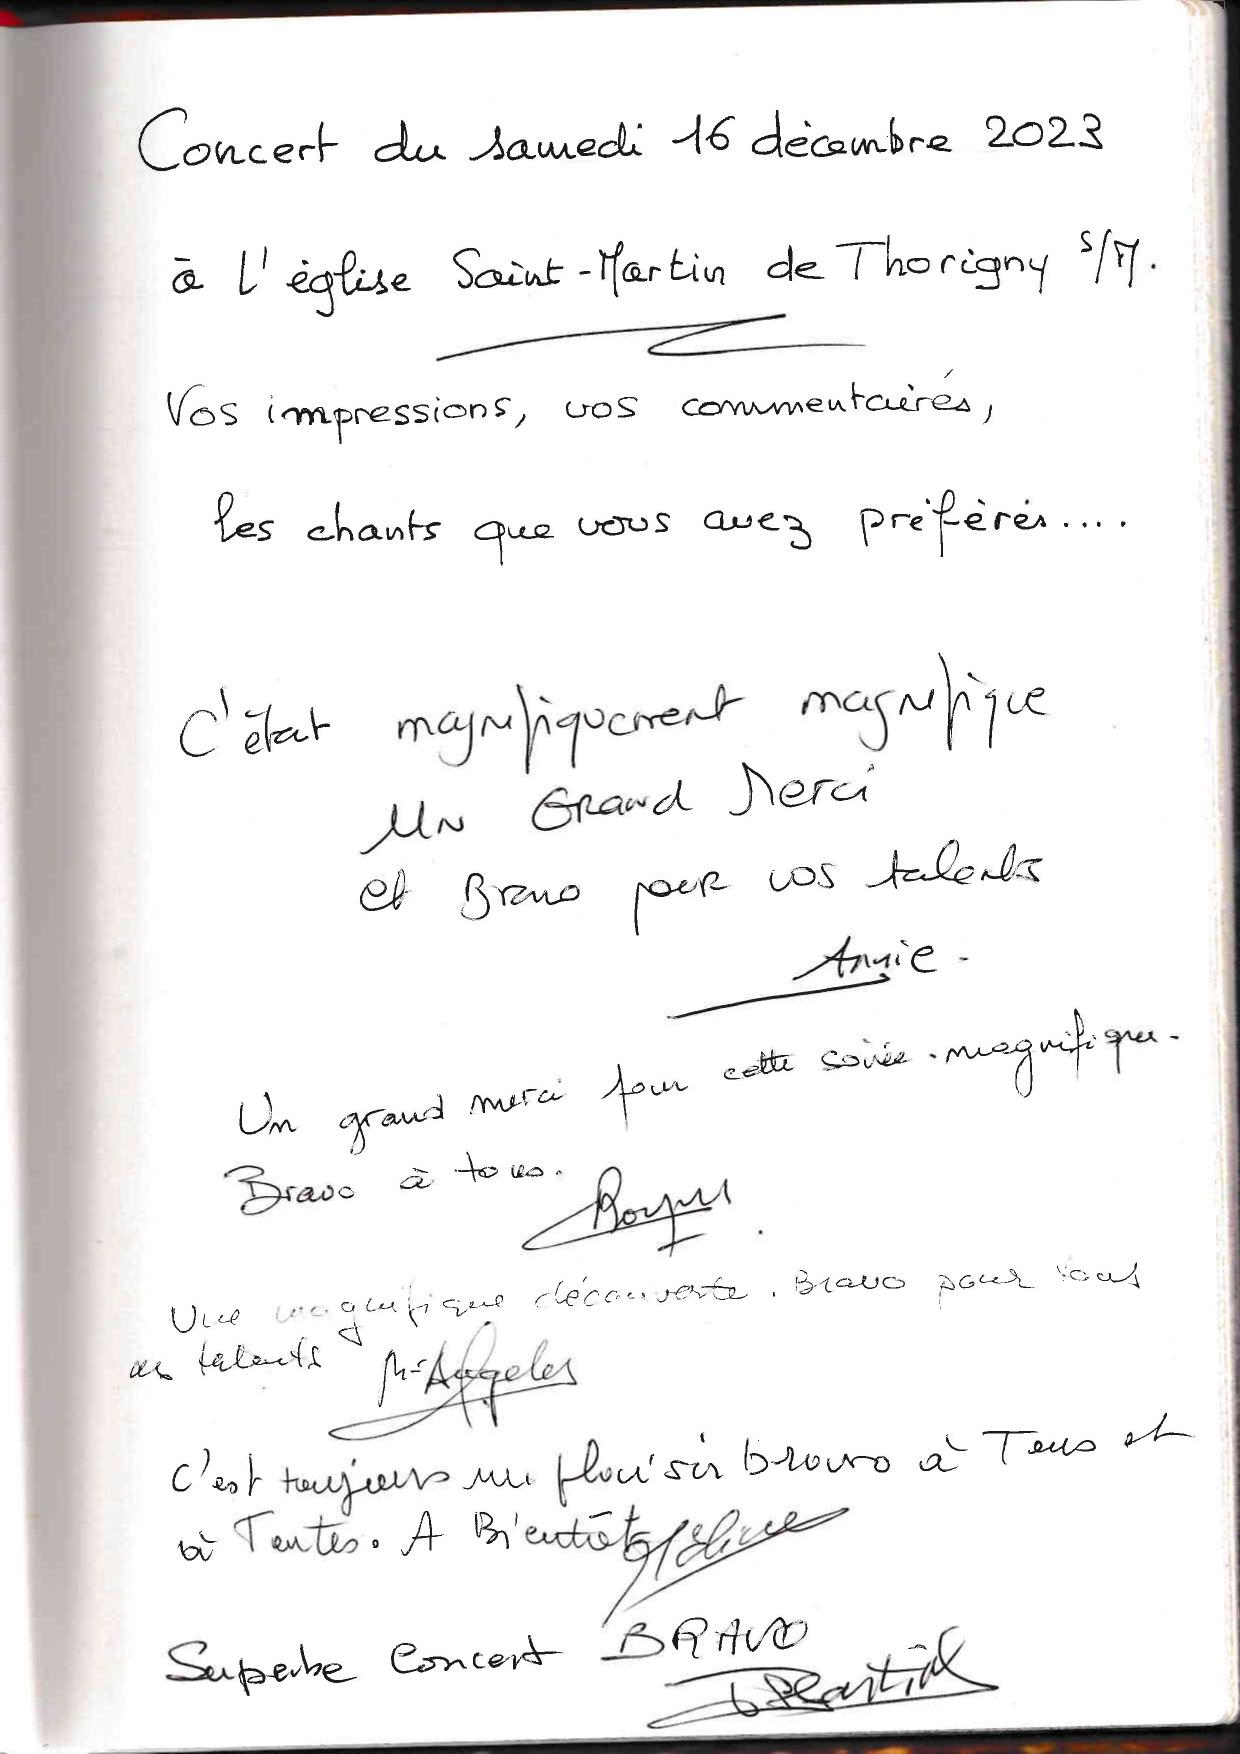 Concert du samedi 16 décembre 2023
à l'église Saint-Martin de Thorigny S/M.
Vos impressions, vos commentaires,
les chants que vous avez préférés....
C'était magnifiquement magnifique
Un Grand Merci
et Bravo pour vos talents
Annie.
Un grand merci pour cette soirée magnifique.
Bravo à tous.
Une magnifique découverte. Bravo pour tous
ces talents M-Angeles
C'est toujours un plaisir bravo à Tous et
à Toutes. A Bientôt
Superbe Concert BRAVO
Martial